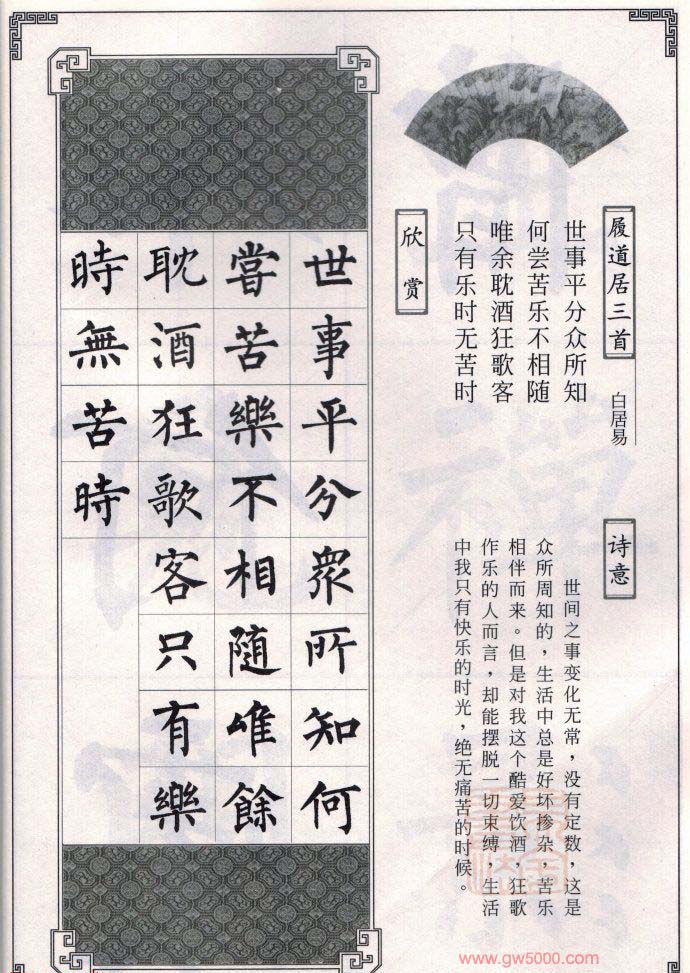 履道居三首
白居易
世事平分众所知
何尝苦乐不相随
唯余耽酒狂歌客
只有乐时无苦时
诗意
世间之事变化无常，没有定数，这是
众所周知的，生活中总是好坏掺杂，苦乐
相伴而来。但是对我这个酷爱饮酒，狂歌
作乐的人而言，却能摆脱一切束缚，生活
中我只有快乐的时光，绝无痛苦的时候。
欣赏
世事平分衆所知何
嘗苦樂不相隨唯餘
耽酒狂歌客只有樂
時無苦時
www.gw5000.com